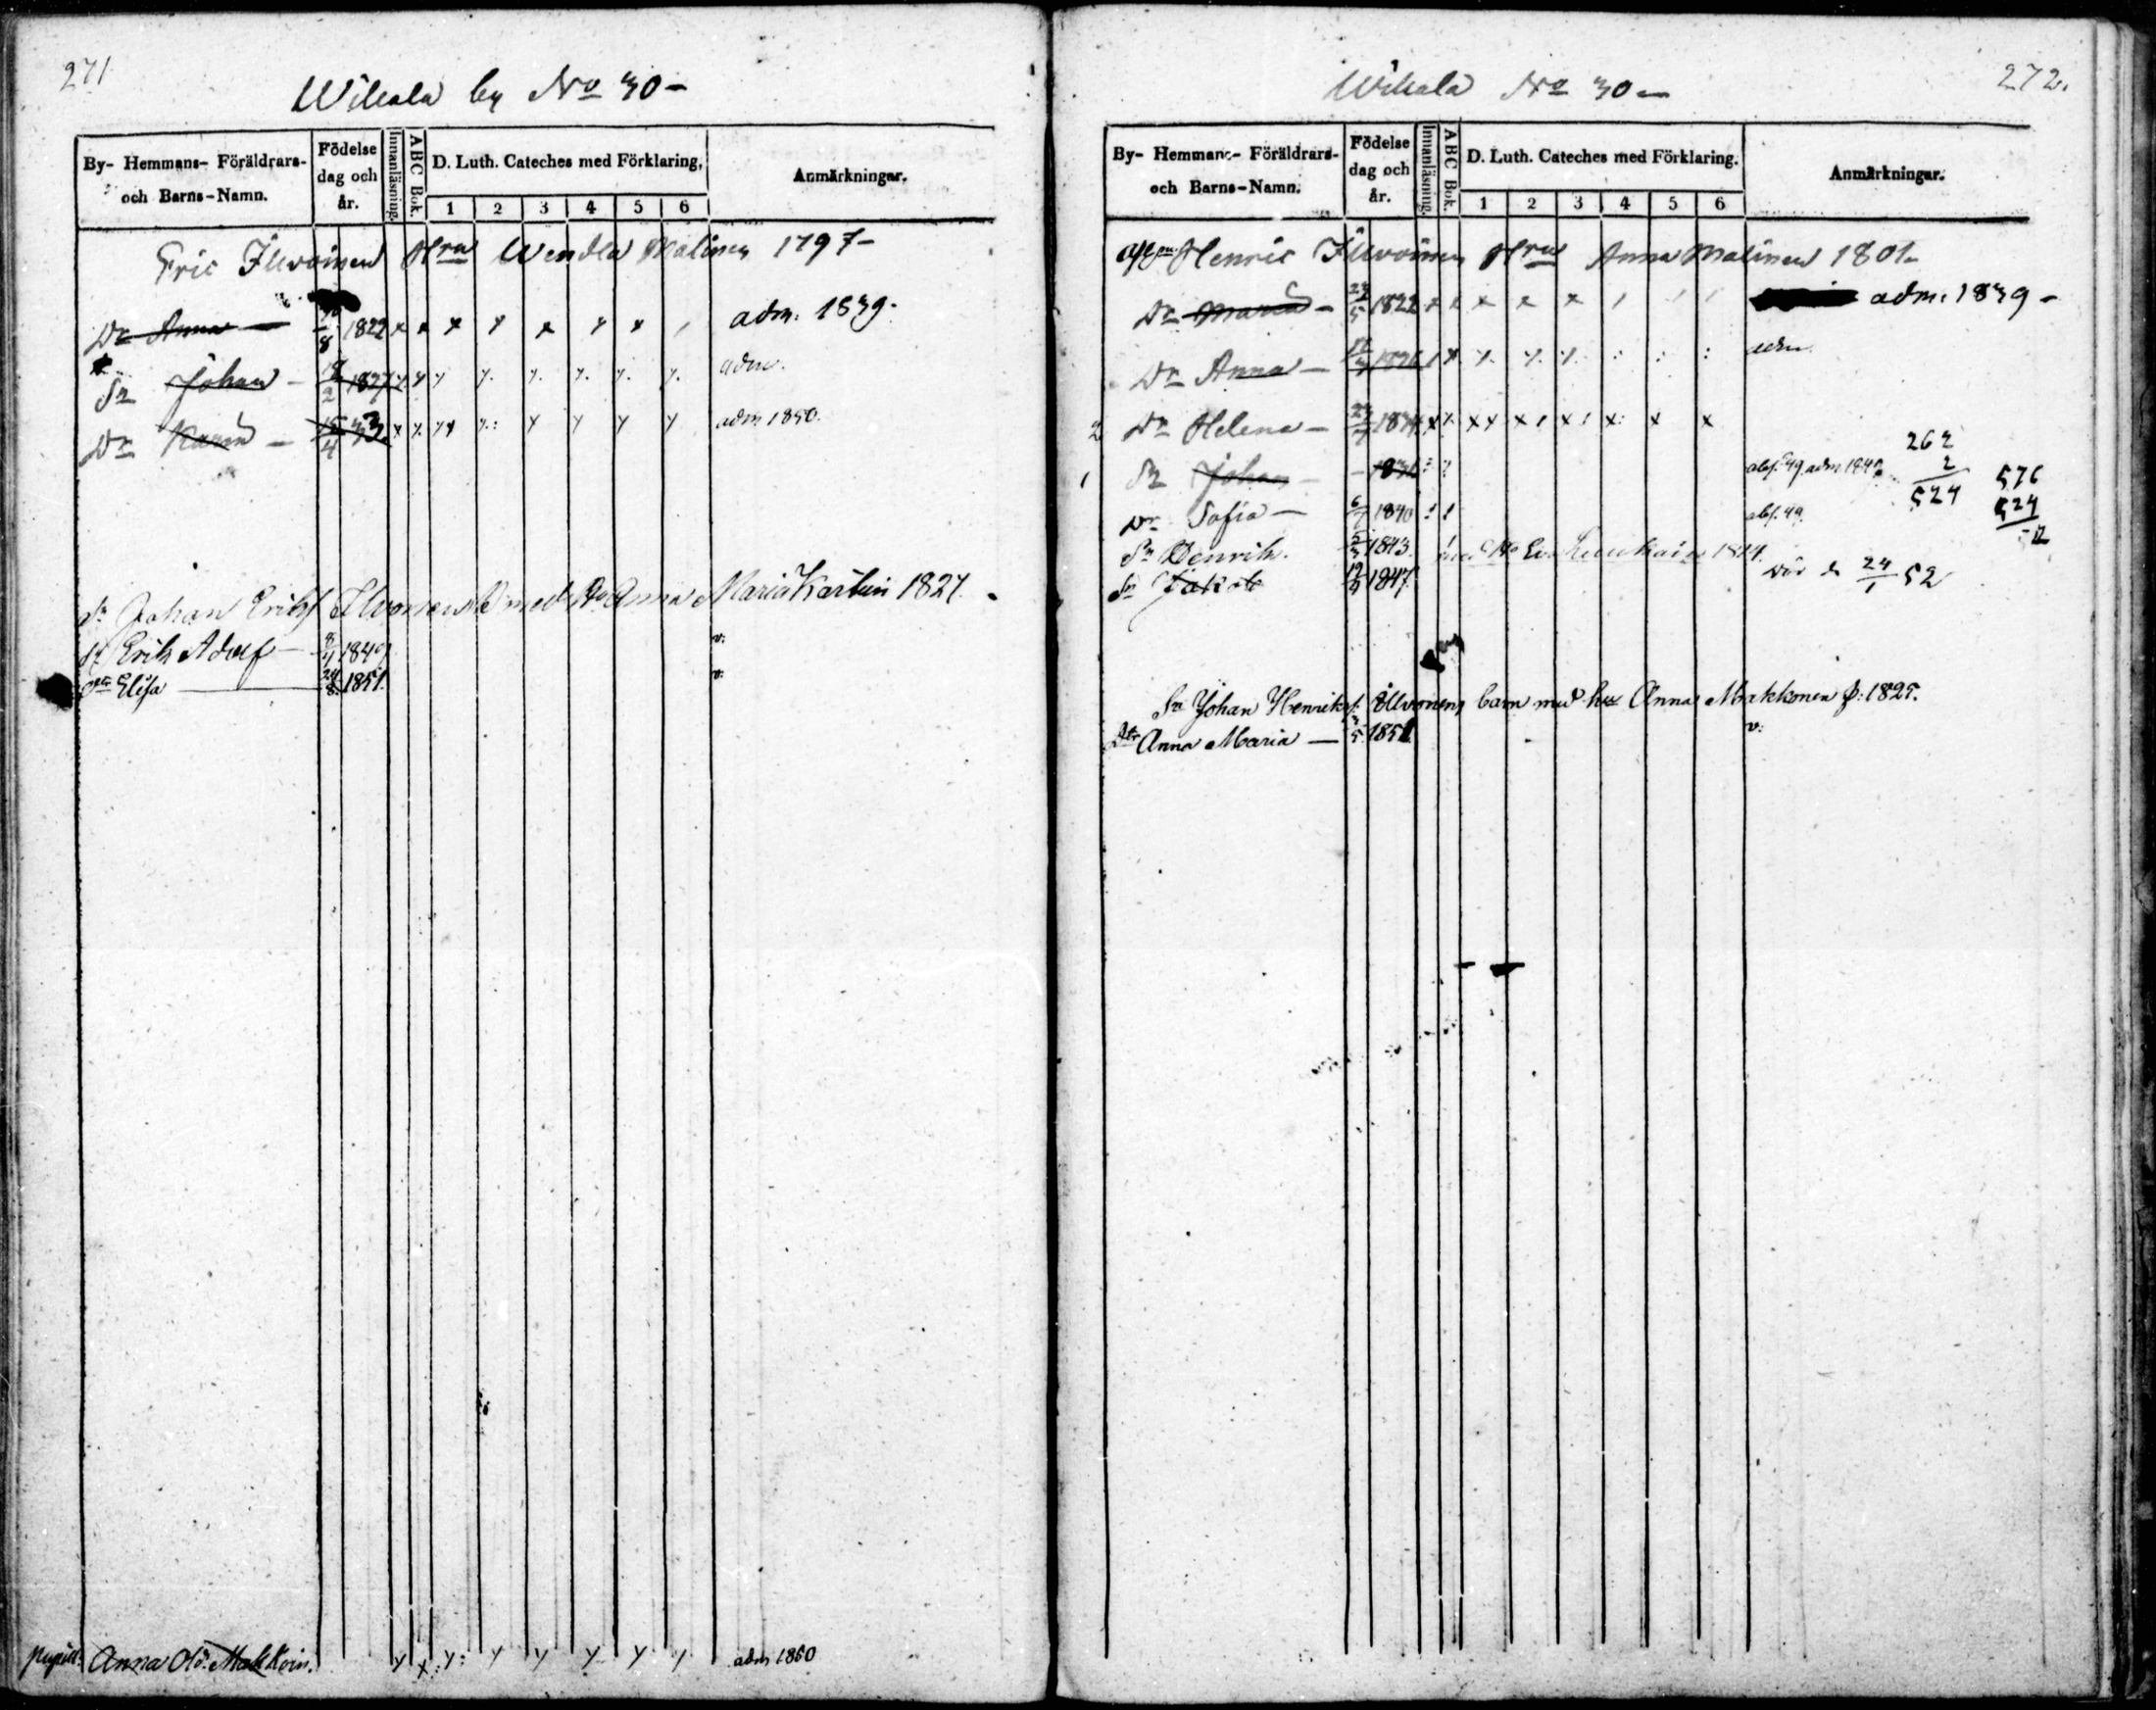 271
Wihala by No 30 -
By- Hemmans- Föräldrars- och Barns-Namn.
Födelse dag och år.
Innanläsning.
ABC Bok.
D. Luth. Cateches med Förklaring,
1 2 3 4 5 6
Anmärkningar.
Eric Ilwoinen Hru Wendla Malinen 1797 -
Dr Anna - 8 1822 x x x x x x x , adm. 1839.
Sn Johan - 2 1827 adm.
Dr Karin - 15/4 33 adm 1850.
Sr Johan Erikss Ilwonens B med Ho Anna Maria Karhin 1827.
Sn Erik Adolf - 1849 v:
Dtr Elisa 24/8 1851. v:
pupill. Anna Makkoin. adm 1860
272.
Wihala No 30 -
By- Hemmans- Föräldrars- och Barns-Namn.
Födelse dag och år.
Innanläsning.
ABC Bok.
D. Luth. Cateches med Förklaring.
1 2 3 4 5 6
Anmärkningar.
Henric Ilwoinen Hru Anna Malinen 1801 -
Dr Maria - 5 1822 x x x x x , , , adm: 1839 -
Dr Anna - adm.
2 Dr Helena - x x x
1 Sn Johan - abs. 49 adm
262
2
524
576
524
52
Dr Sofia - 6/7 1840 ! ! abs. 49.
Sn Henrik. 1843.
Sn Jakob 1847 död d 24/1 52
Sn Johan Henrikss. Ilwonens barn med hu Anna Makkonen f: 1825.
Dtr Anna Maria - 5 1851 v: